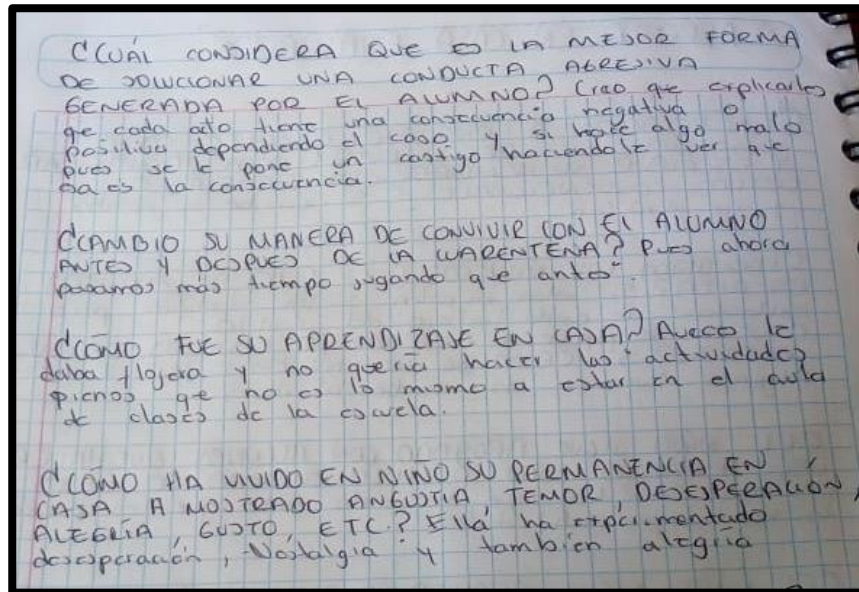 ¿CUÁL CONSIDERA QUE ES LA MEJOR FORMA
DE SOLUCIONAR UNA CONDUCTA AGRESIVA
GENERADA POR EL ALUMNO? Creo que explicarles
qe cada acto tiene una consecuencia negativa o
positiva dependiendo el caso y si hace algo malo
pues se le pone un castigo haciendole ver que
esa es la consecuencia.
¿CAMBIO SU MANERA DE CONVIVIR CON EL ALUMNO
ANTES Y DESPUES DE LA CUARENTENA? Pues ahora
pasamos más tiempo jugando que antes.
¿CÓMO FUE SU APRENDIZAJE EN CASA? Aveces le
daba flojera y no quería hacer las actividades
pienso qe no es lo mismo a estar en el aula
de clases de la escuela.
¿CÓMO HA VIVIDO EN NIÑO SU PERMANENCIA EN
CASA A MOSTRADO ANGUSTIA, TEMOR, DESESPERACIÓN,
ALEGRÍA, GUSTO, ETC.? Ella ha experimentado
desesperación, Nostalgia y tambien alegria